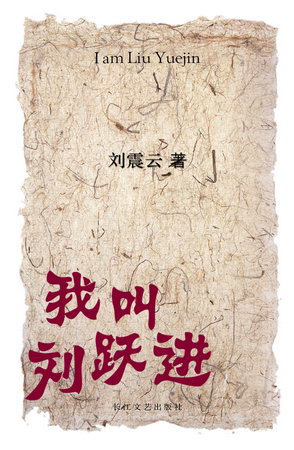 I am Liu Yuejin
刘震云 著
我叫
刘跃进
长江文艺出版社